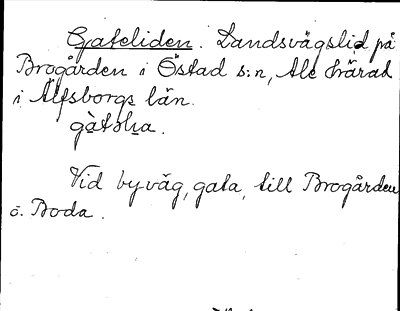 Gateliden. Landsvägslid på
Brogården i Östad s:n, Ale härad
i Älfsborgs län.
Vid byväg, gata, till Brogården
o. Boda.